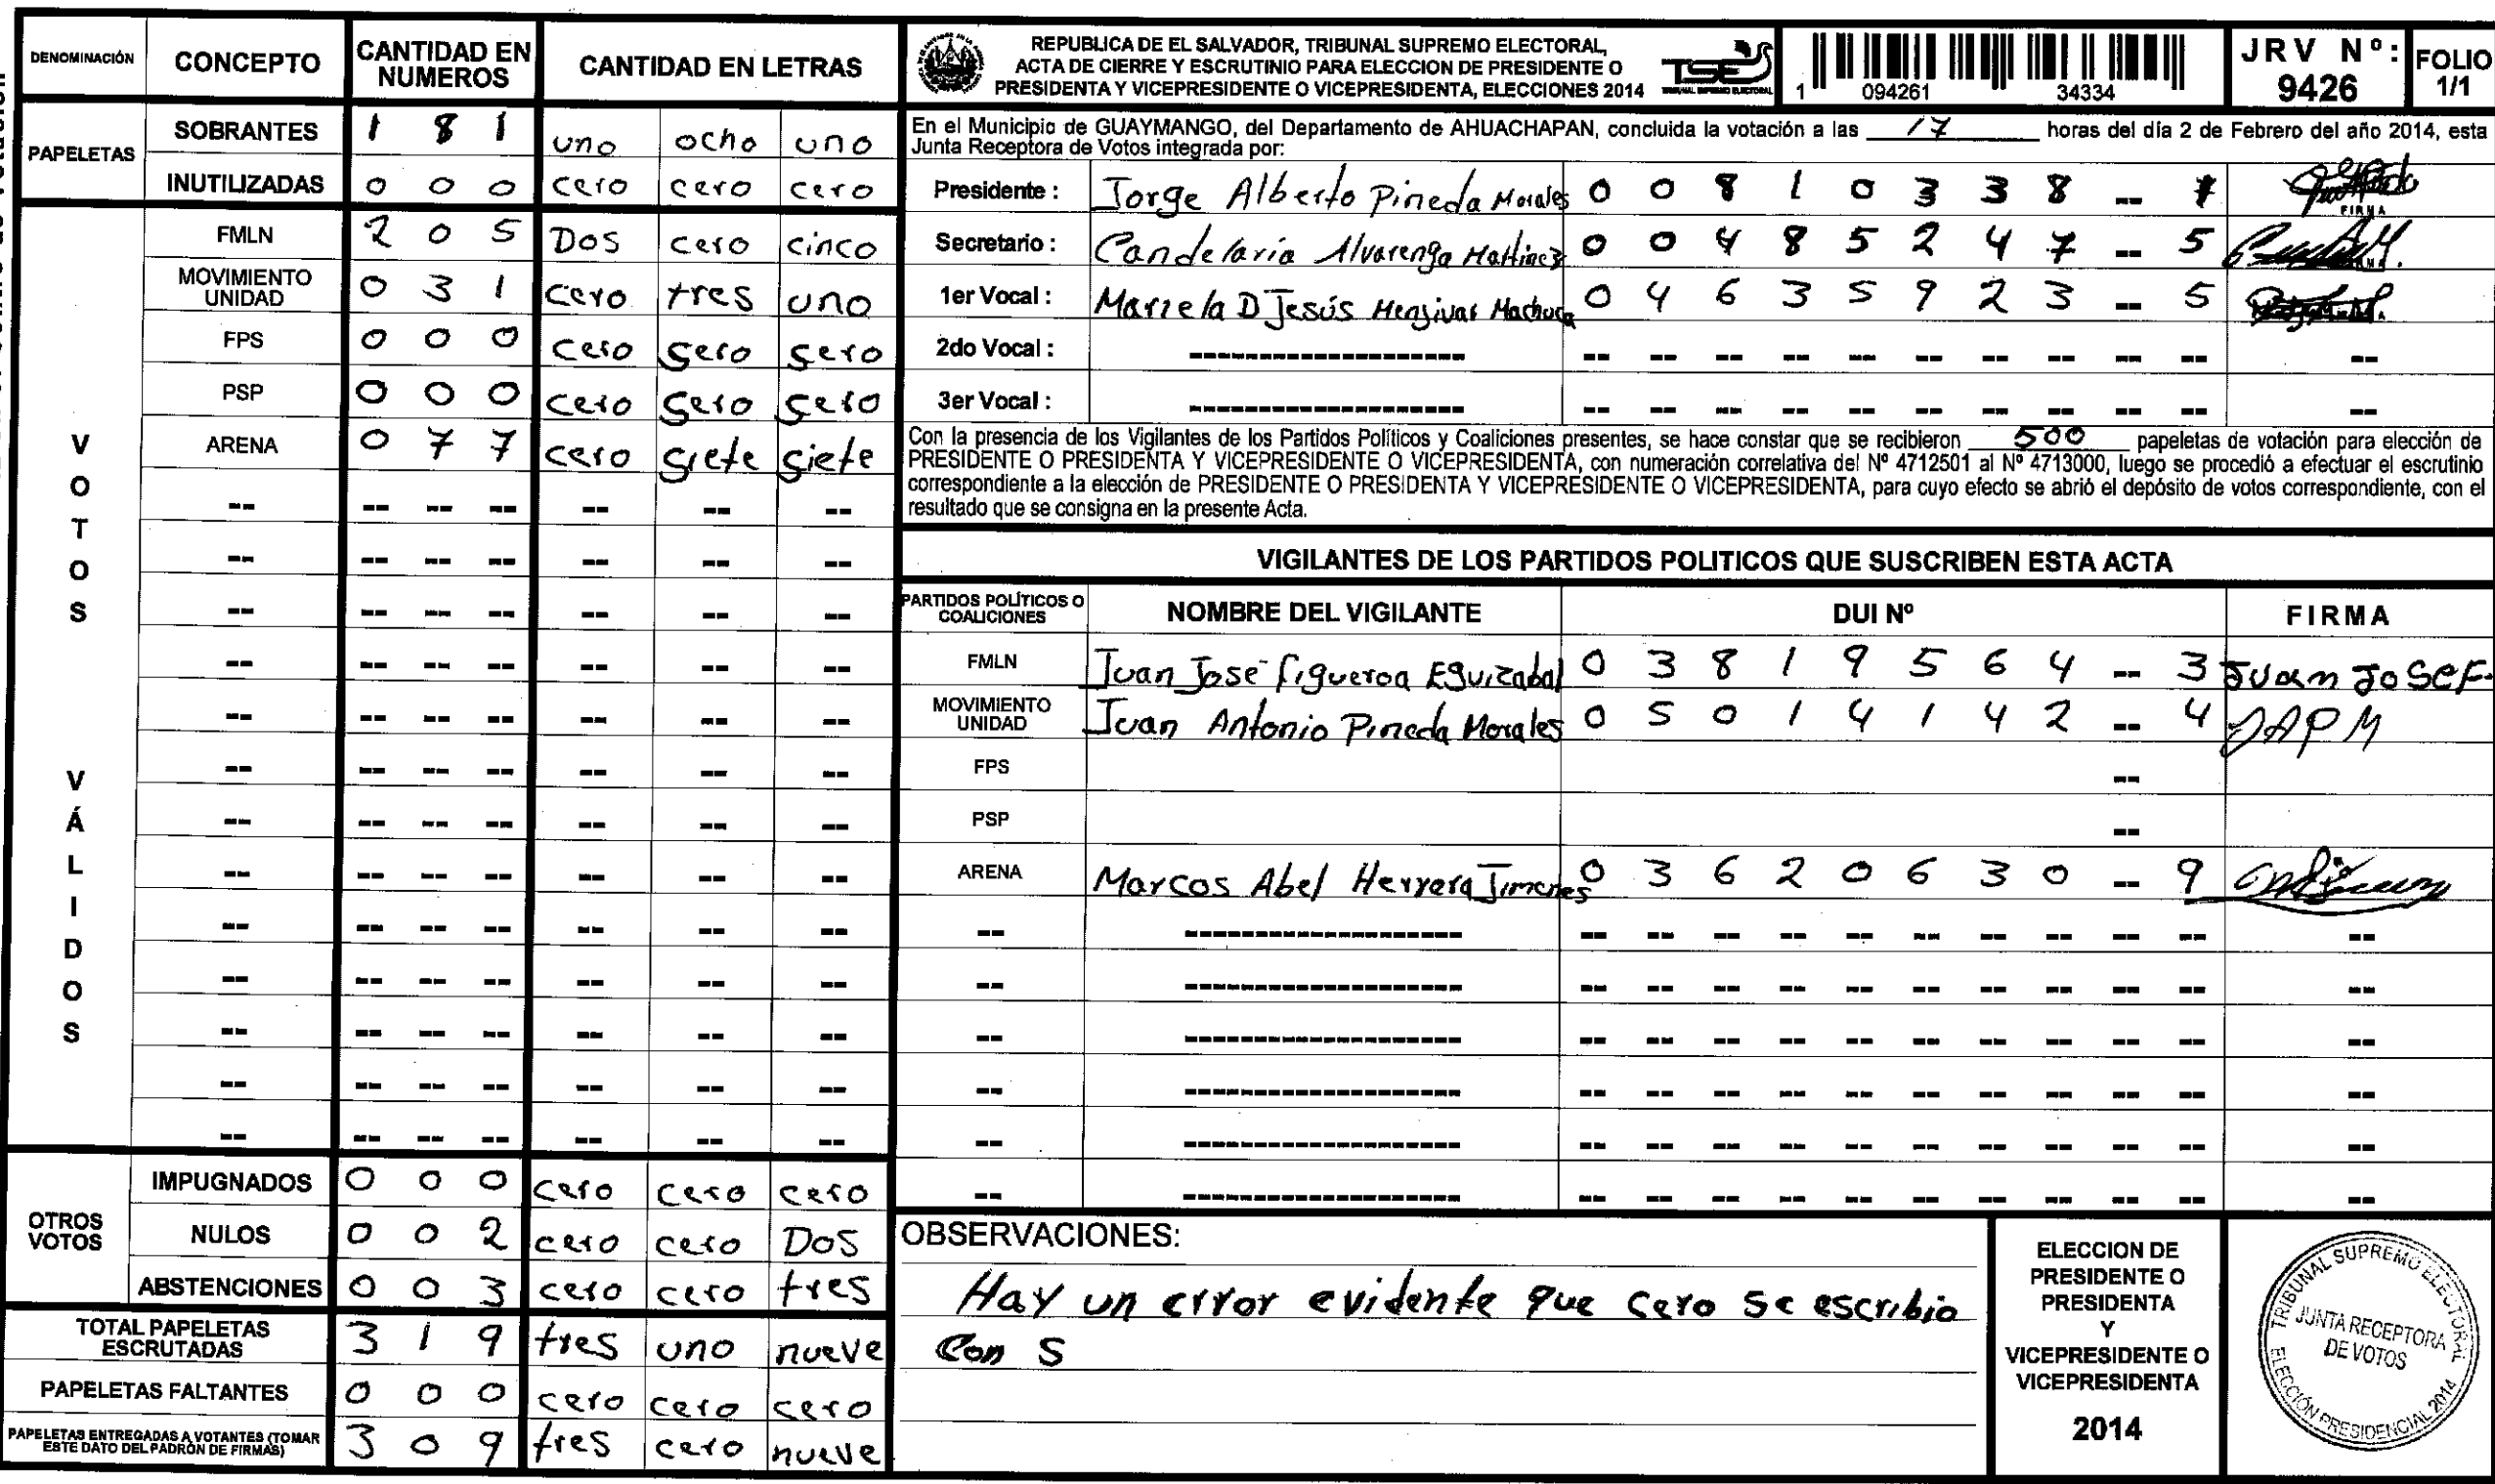 DENOMINACIÓN CONCEPTO CANTIDAD EN NUMEROS CANTIDAD EN LETRAS
PAPELETAS
SOBRANTES 1 8 1 uno ocho uno
INUTILIZADAS 0 0 0 cero cero cero
VOTOS VÁLIDOS
FMLN 2 0 5 DOS cero cinco
MOVIMIENTO UNIDAD 0 3 1 cero tres uno
FPS 0 0 0 cero sero sero
PSP 0 0 0 cero sero sero
ARENA 0 7 7 cero siete siete
OTROS VOTOS
IMPUGNADOS 0 0 0 cero cero cero
NULOS 0 0 2 cero cero DOS
ABSTENCIONES 0 0 3 cero cero tres
TOTAL PAPELETAS ESCRUTADAS 3 1 9 tres uno nueve
PAPELETAS FALTANTES 0 0 0 cero cero cero
PAPELETAS ENTREGADAS A VOTANTES (TOMAR ESTE DATO DEL PADRÓN DE FIRMAS) 3 0 9 tres cero nueve
REPUBLICA DE EL SALVADOR, TRIBUNAL SUPREMO ELECTORAL,
ACTA DE CIERRE Y ESCRUTINIO PARA ELECCION DE PRESIDENTE O
PRESIDENTA Y VICEPRESIDENTE O VICEPRESIDENTA, ELECCIONES 2014
TSE
TRIBUNAL SUPREMO ELECTORAL
1 094261 34334
JRV Nº: 9426
FOLIO 1/1
En el Municipio de GUAYMANGO, del Departamento de AHUACHAPAN, concluida la votación a las 17 horas del día 2 de Febrero del año 2014, esta
Junta Receptora de Votos integrada por:
Presidente : Jorge Alberto Pineda Morales 0 0 8 1 0 3 3 8 -- FIRMA
Secretario : Candelaria Alvarenga Martinez 0 0 4 8 5 2 4 7 -- 5
1er Vocal : Mariela D Jesús Menjivar Machuca 0 4 6 3 5 9 2 3 -- 5
2do Vocal :
3er Vocal :
Con la presencia de los Vigilantes de los Partidos Políticos y Coaliciones presentes, se hace constar que se recibieron 500 papeletas de votación para elección de
PRESIDENTE O PRESIDENTA Y VICEPRESIDENTE O VICEPRESIDENTA, con numeración correlativa del Nº 4712501 al Nº 4713000, luego se procedió a efectuar el escrutinio
correspondiente a la elección de PRESIDENTE O PRESIDENTA Y VICEPRESIDENTE O VICEPRESIDENTA, para cuyo efecto se abrió el depósito de votos correspondiente, con el
resultado que se consigna en la presente Acta.
VIGILANTES DE LOS PARTIDOS POLITICOS QUE SUSCRIBEN ESTA ACTA
PARTIDOS POLÍTICOS O COALICIONES NOMBRE DEL VIGILANTE DUI Nº FIRMA
FMLN Juan José figueroa Eguizabal 0 3 8 1 9 5 6 4 -- 3 Juan JoSeF.
MOVIMIENTO UNIDAD Juan Antonio Pineda Morales 0 5 0 1 4 1 4 2 -- 4 JAPM
FPS --
PSP --
ARENA Marcos Abel Herrera Jimenes 0 3 6 2 0 6 3 0 -- 9
OBSERVACIONES:
Hay un error evidente que cero se escribio
con S
ELECCION DE
PRESIDENTE O
PRESIDENTA
Y
VICEPRESIDENTE O
VICEPRESIDENTA
2014
TRIBUNAL SUPREMO ELECTORAL
JUNTA RECEPTORA
DE VOTOS
ELECCIÓN PRESIDENCIAL 2014